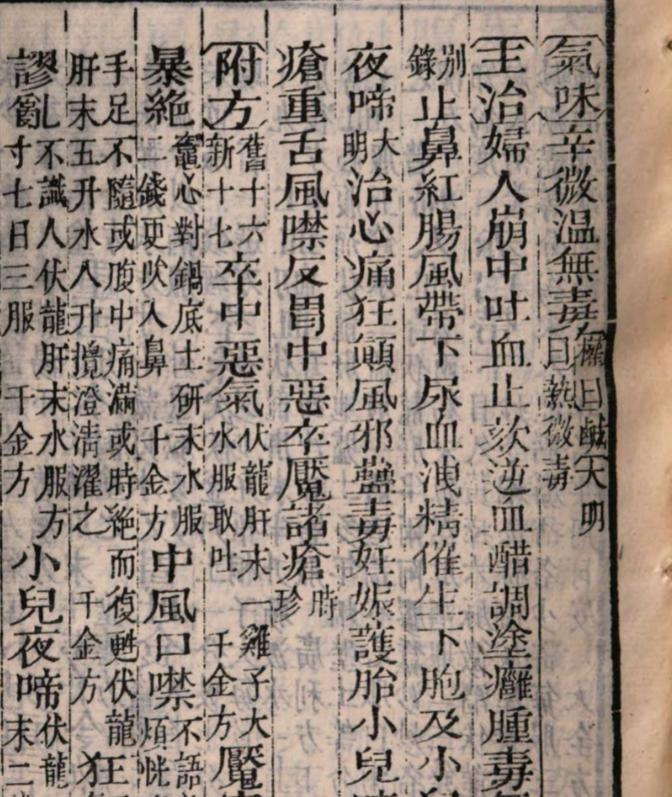 氣味辛微溫無毒權曰鹹大明曰熱微毒
主治婦人崩中吐血止欬逆血醋調塗癰腫毒
別錄止鼻紅腸風帶下尿血洩精催生下胞及小
夜啼大明治心痛狂顛風邪蠱毒妊娠護胎小兒
瘡重舌風噤反胃中惡卒魘諸瘡時珍
附方舊十六新十七卒中惡氣伏龍肝末一雞子大水服取吐千金方魘
暴絶竈心對鍋底土研末水服二錢更吹入鼻千金方中風口噤不語煩恍
手足不隨或腹中痛滿或時絶而復甦伏龍肝末五升水八升攪澄清濯之千金方狂
謬亂不識人伏龍肝末水服方寸七日三服千金方小兒夜啼伏龍末二